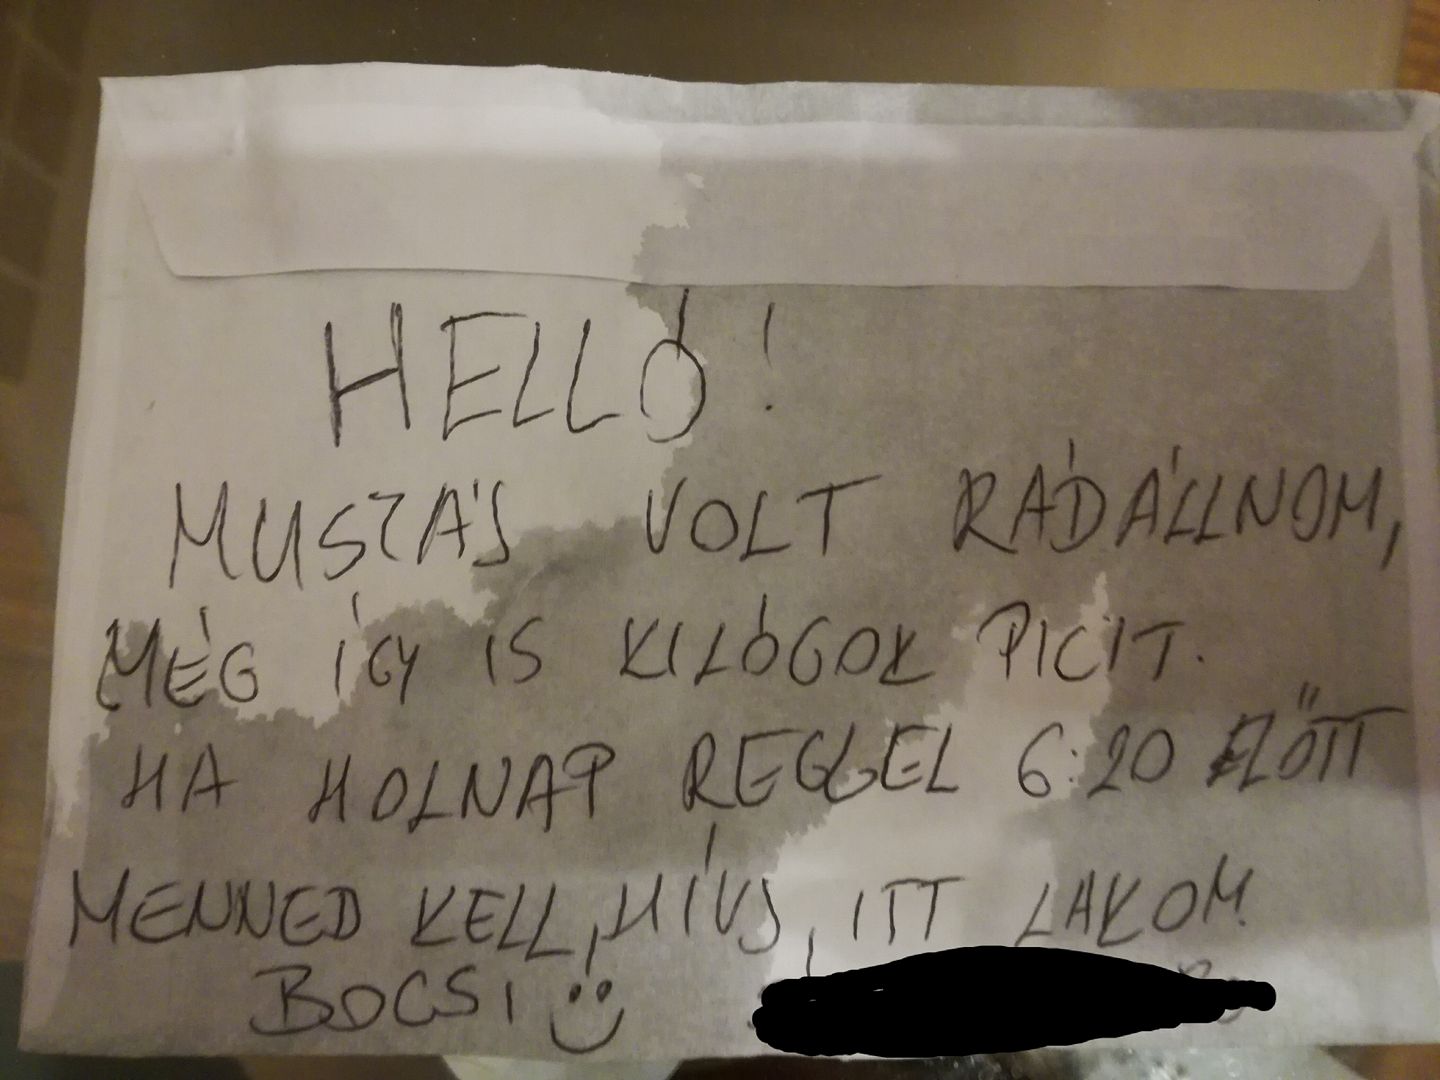 HELLÓ!
MUSZÁJ VOLT RÁDÁLLNOM,
MÉG ÍGY IS KILÓGOK PICIT.
HA HOLNAP REGGEL 6:20 ELŐTT
MENNED KELL, HÍVJ, ITT LAKOM.
BOCSI